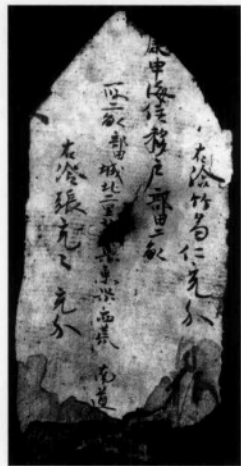 右給竹苟仁充分
康申海住移戶部田二畝
一段二畝部田城北二里新興東渠西荒南道
右給張充々充分